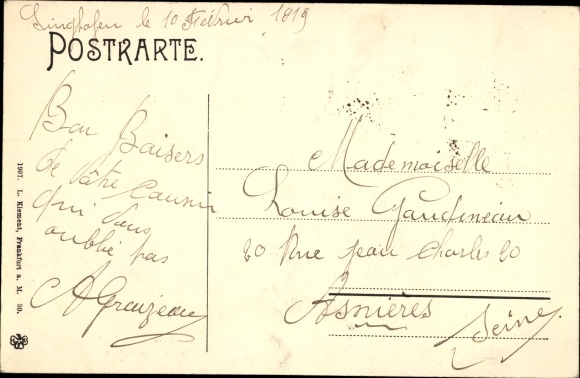 Singhofen le 10 Février 1919
POSTKARTE.
Bon Baisers
de vôtre Cousin
qui vous
oublie pas
A Grouzeau
Mademoiselle
Louise Gaudineau
20 Rue Jean Charles 20
Asnières
Seine.
1907. L. Klement, Frankfurt a. M. 30.